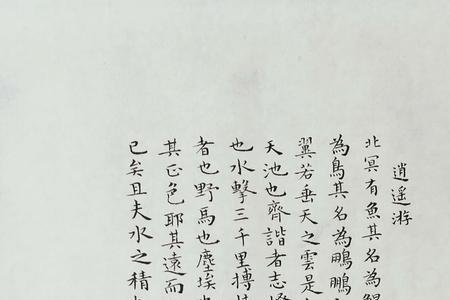 逍遥游
北冥有魚其名為鯤
為鳥其名為鵬鵬
翼若垂天之雲是
天池也齊諧者志
也水擊三千里搏
者也野馬也塵埃
其正色耶其遠而
已矣且夫水之積